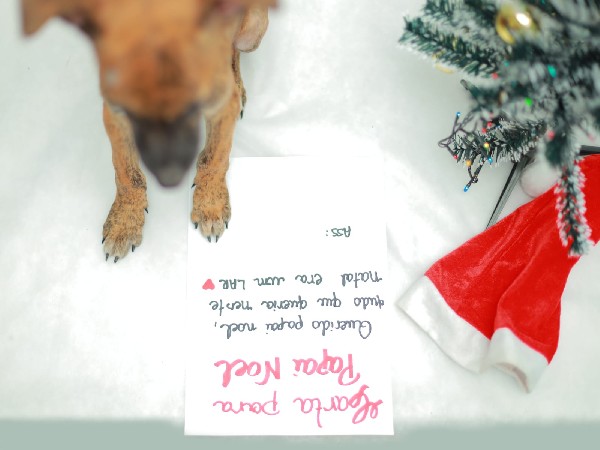 Carta para
Papai Noel
Querido papai noel,
tudo que queria neste
natal era um LAR
ASS: